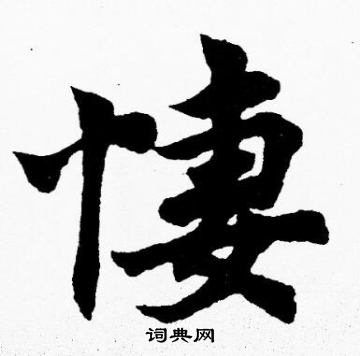 悽
词典网